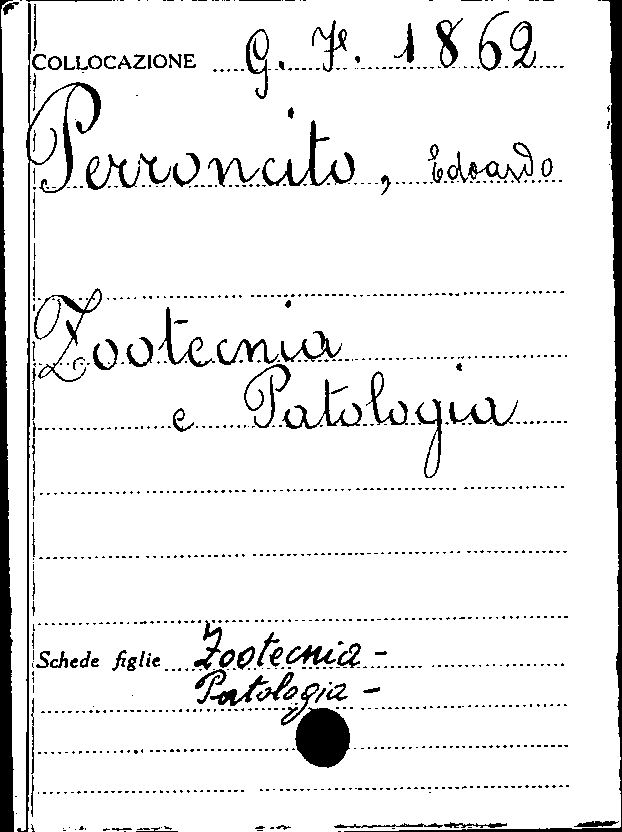 COLLOCAZIONE G. F. 1862
Perroncito, Edoardo
Zootecnia
e Patologia
Schede figlie Zootecnia -
Patologia -